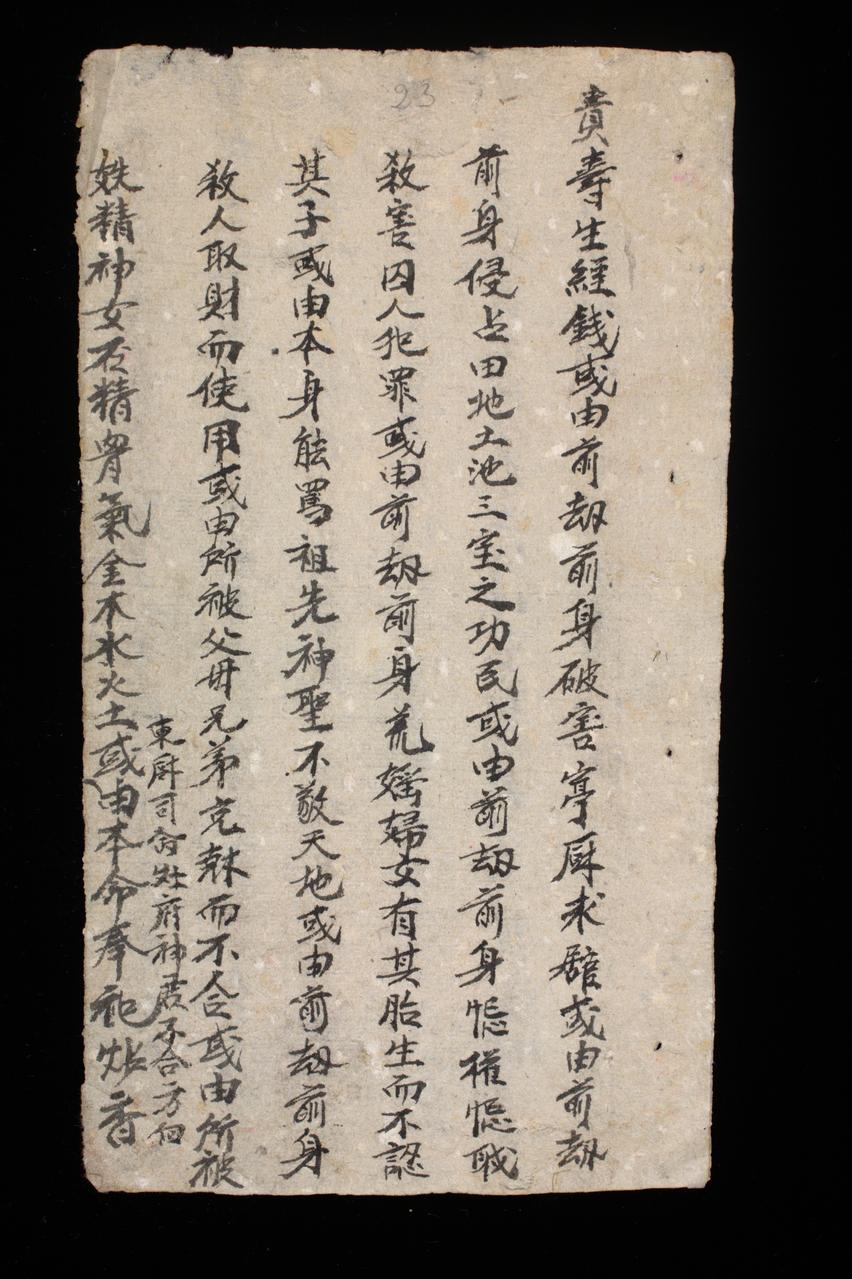 23
責壽生經錢或由前劫前身破害亭厨求舘或由前劫
前身侵占田地土池三宝之功民或由前劫前身怹權怹職
殺害囚人犯罪或由前劫前身荒婬婦女有其胎生而不認
其子或由本身䏻罵祖先神聖不敬天地或由前劫前身
殺人取財而使用或由所被父毋兄弟克𠛬而不合或由所被
東厨司命灶府神君不合方向
妖精神女石精骨氣金木水火土或由本命奉祀炉香